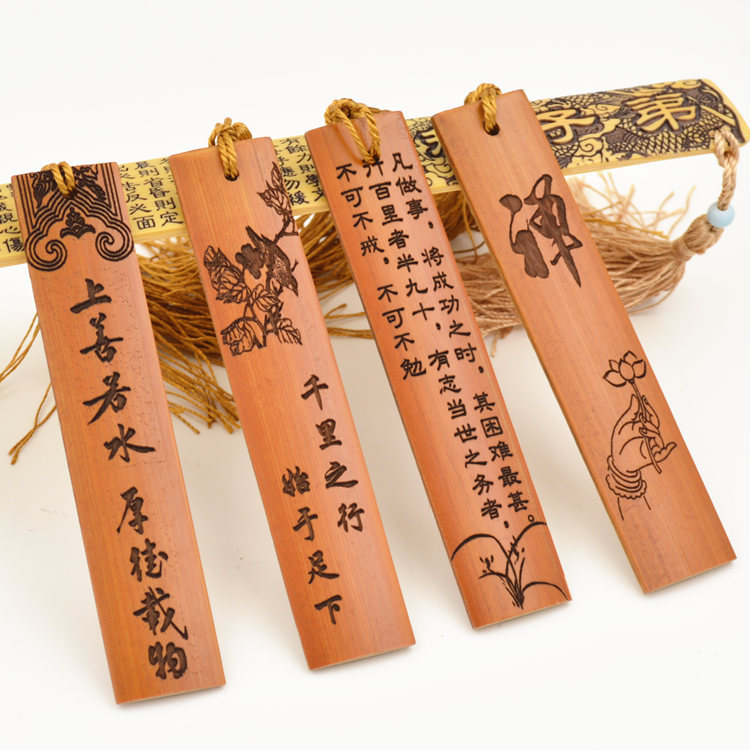 上善若水
厚德載物
千里之行
始于足下
凡做事，将成功之时，其困难最甚。
行百里者半九十，有志当世之务者，
不可不戒，不可不勉
禅
弟子
昏則定
反必面